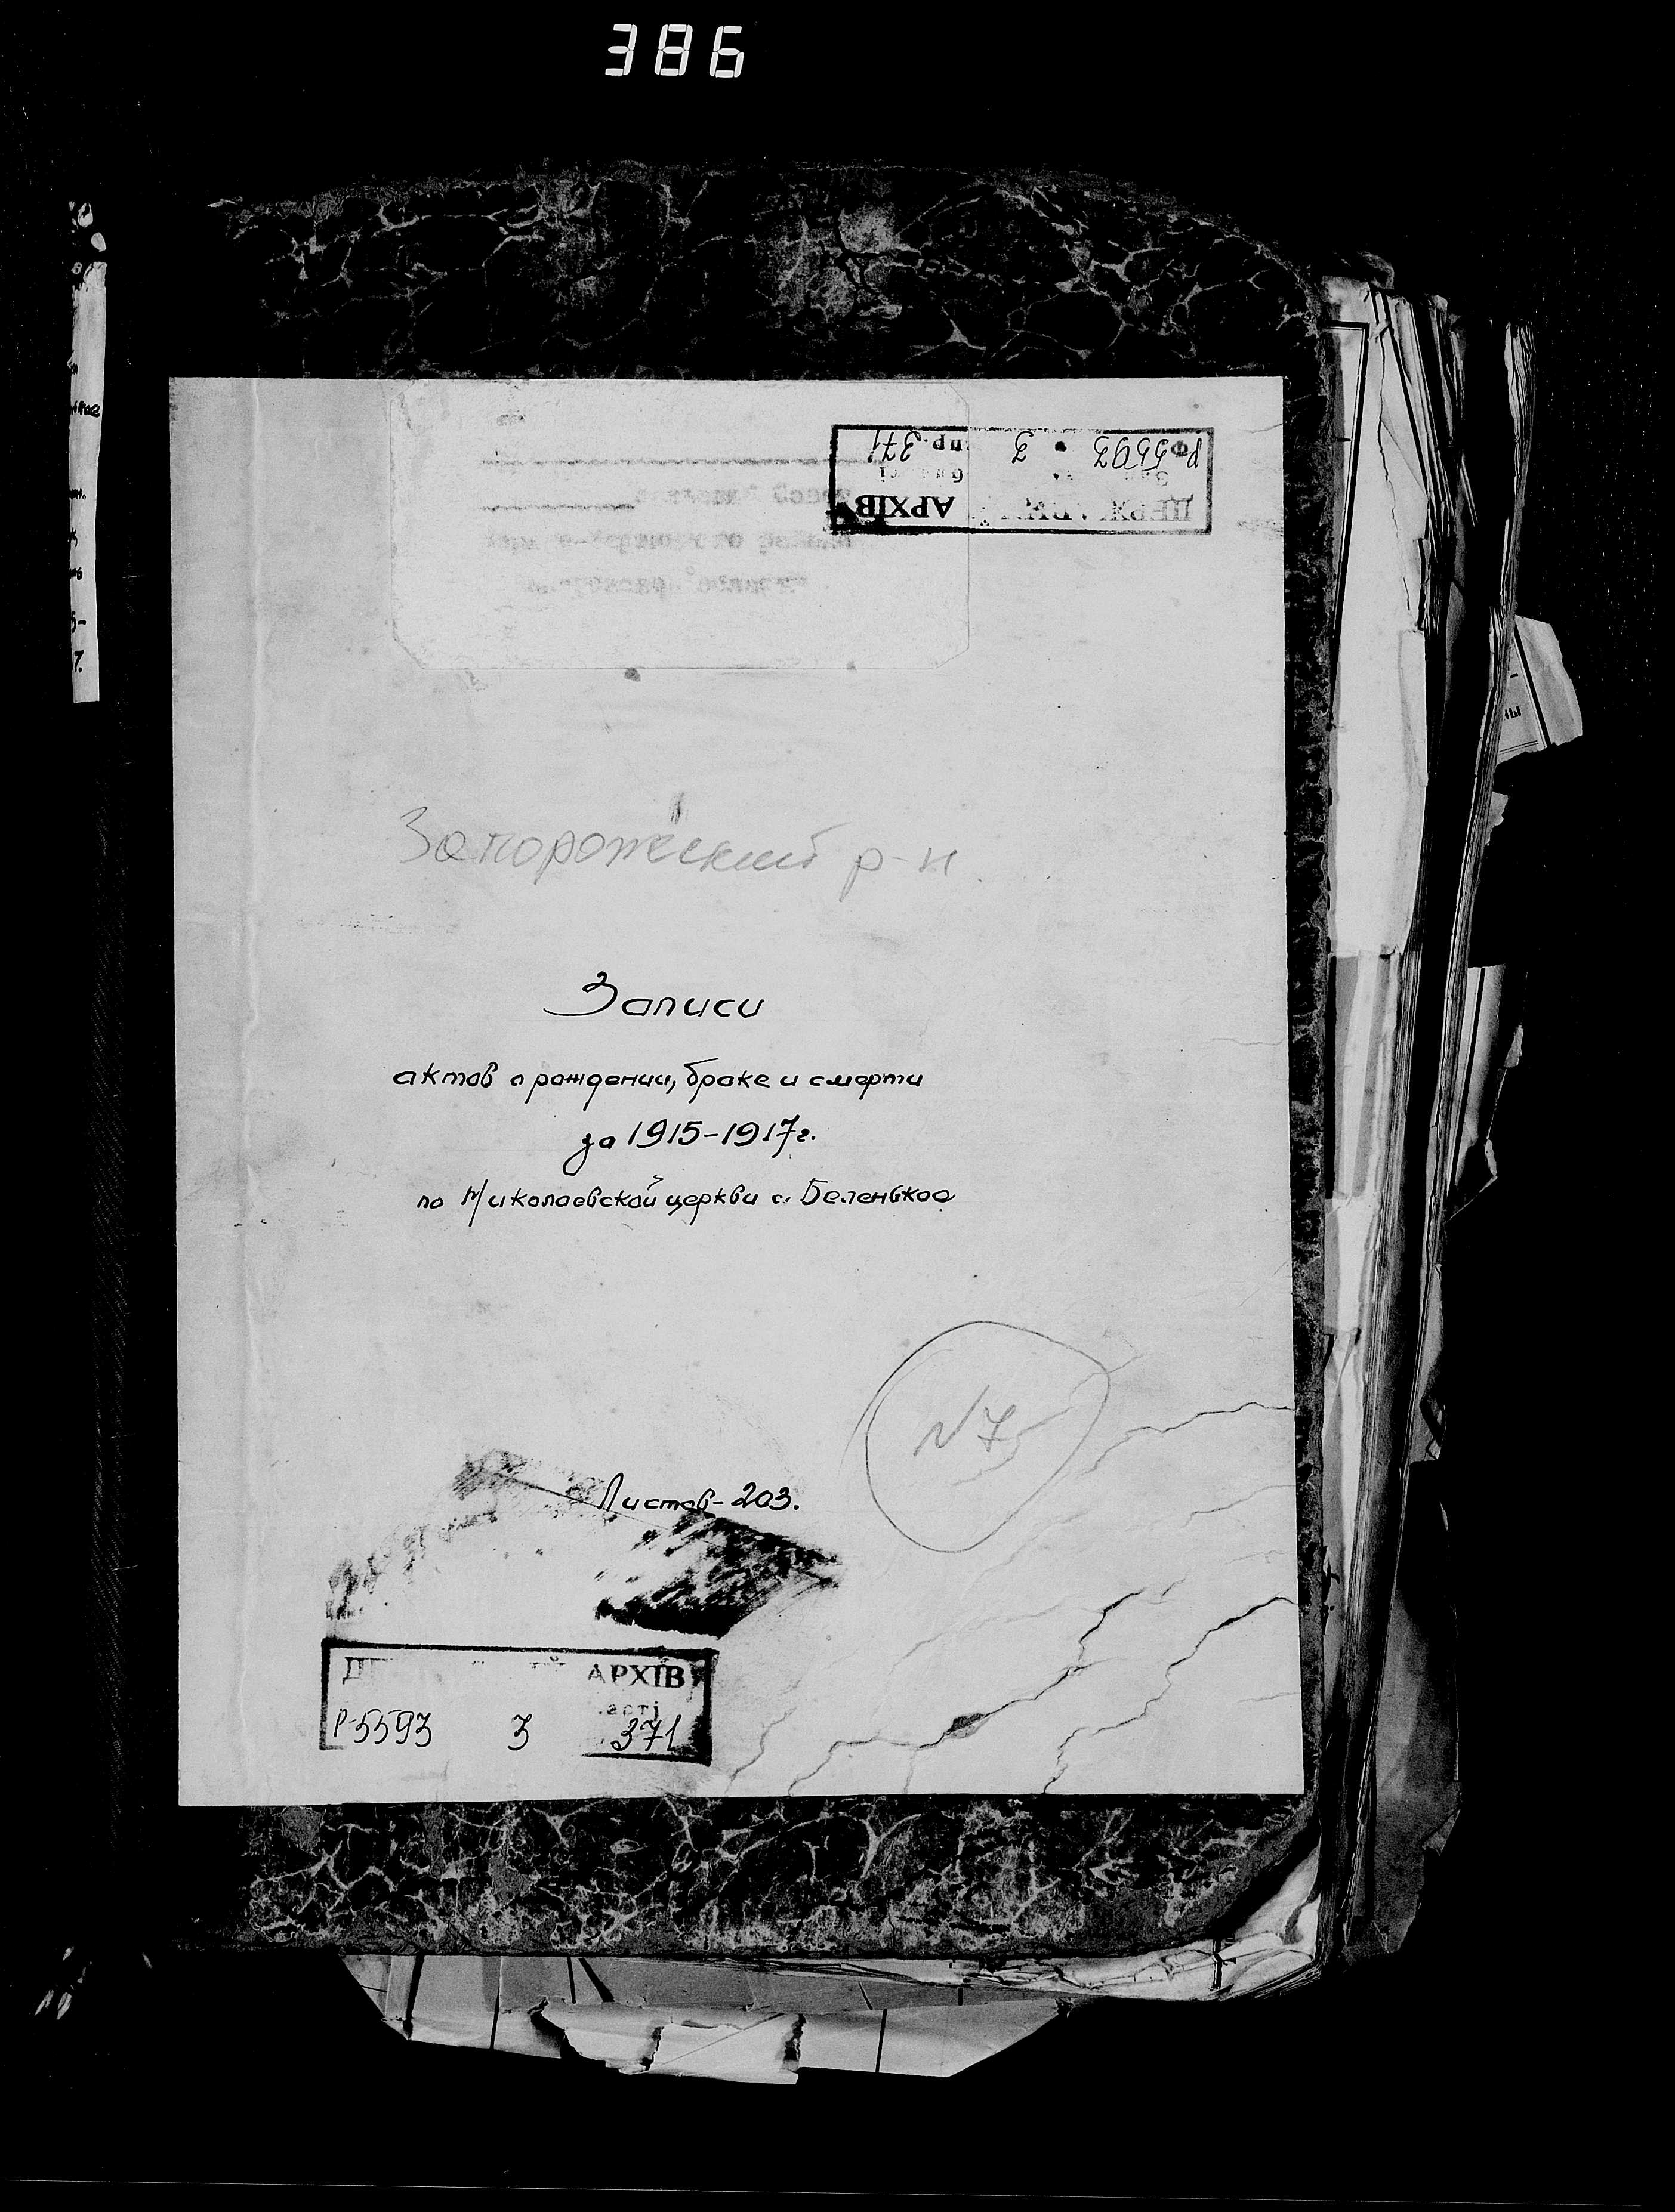 386
АРХІВ
Р5593 3 пр. 371
Запорожский р-н.
Записи
актов о рождении, браке и смерти
за 1915-1917г.
по Николаевской церкви с. Беленькое
N7
Листов-203.
АРХІВ
Р-5593 3 371